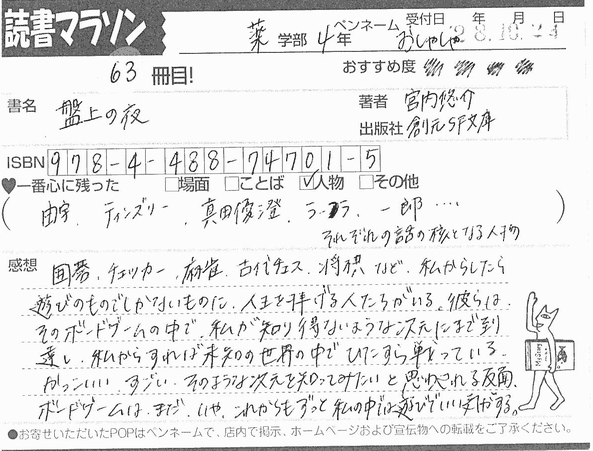 読書マラソン
薬 学部 4年 ペンネーム おしゃしゃ 受付日 年 月 日
28.10.24
63 冊目! おすすめ度
書名 盤上の夜 著者 宮内悠介
出版社 創元SF文庫
ISBN 978-4-488-74701-5
♥一番心に残った □場面 □ことば ☑人物 □その他
( 由宇、ティンズリー、真田優澄、ラーフラ、一郎‥‥ )
それぞれの話の核となる人物
感想 囲碁、チェッカー、麻雀、古代チェス、将棋など、私からしたら
遊びのものでしかないものに、人生を捧げる人たちがいる。彼らは、
そのボードゲームの中で、私が知り得ないような次元にまで到
達し、私からすれば未知の世界の中でひたすら単をっている。
かっこいい、すごい、そのような次元を知ってみたいと思わされる反面、
ボードゲームは、まだ、いや、これからもずっと私の中では遊びでいい気がする。
●お寄せいただいたPOPはペンネームで、店内で掲示、ホームページおよび宣伝物への転載をご了承ください。